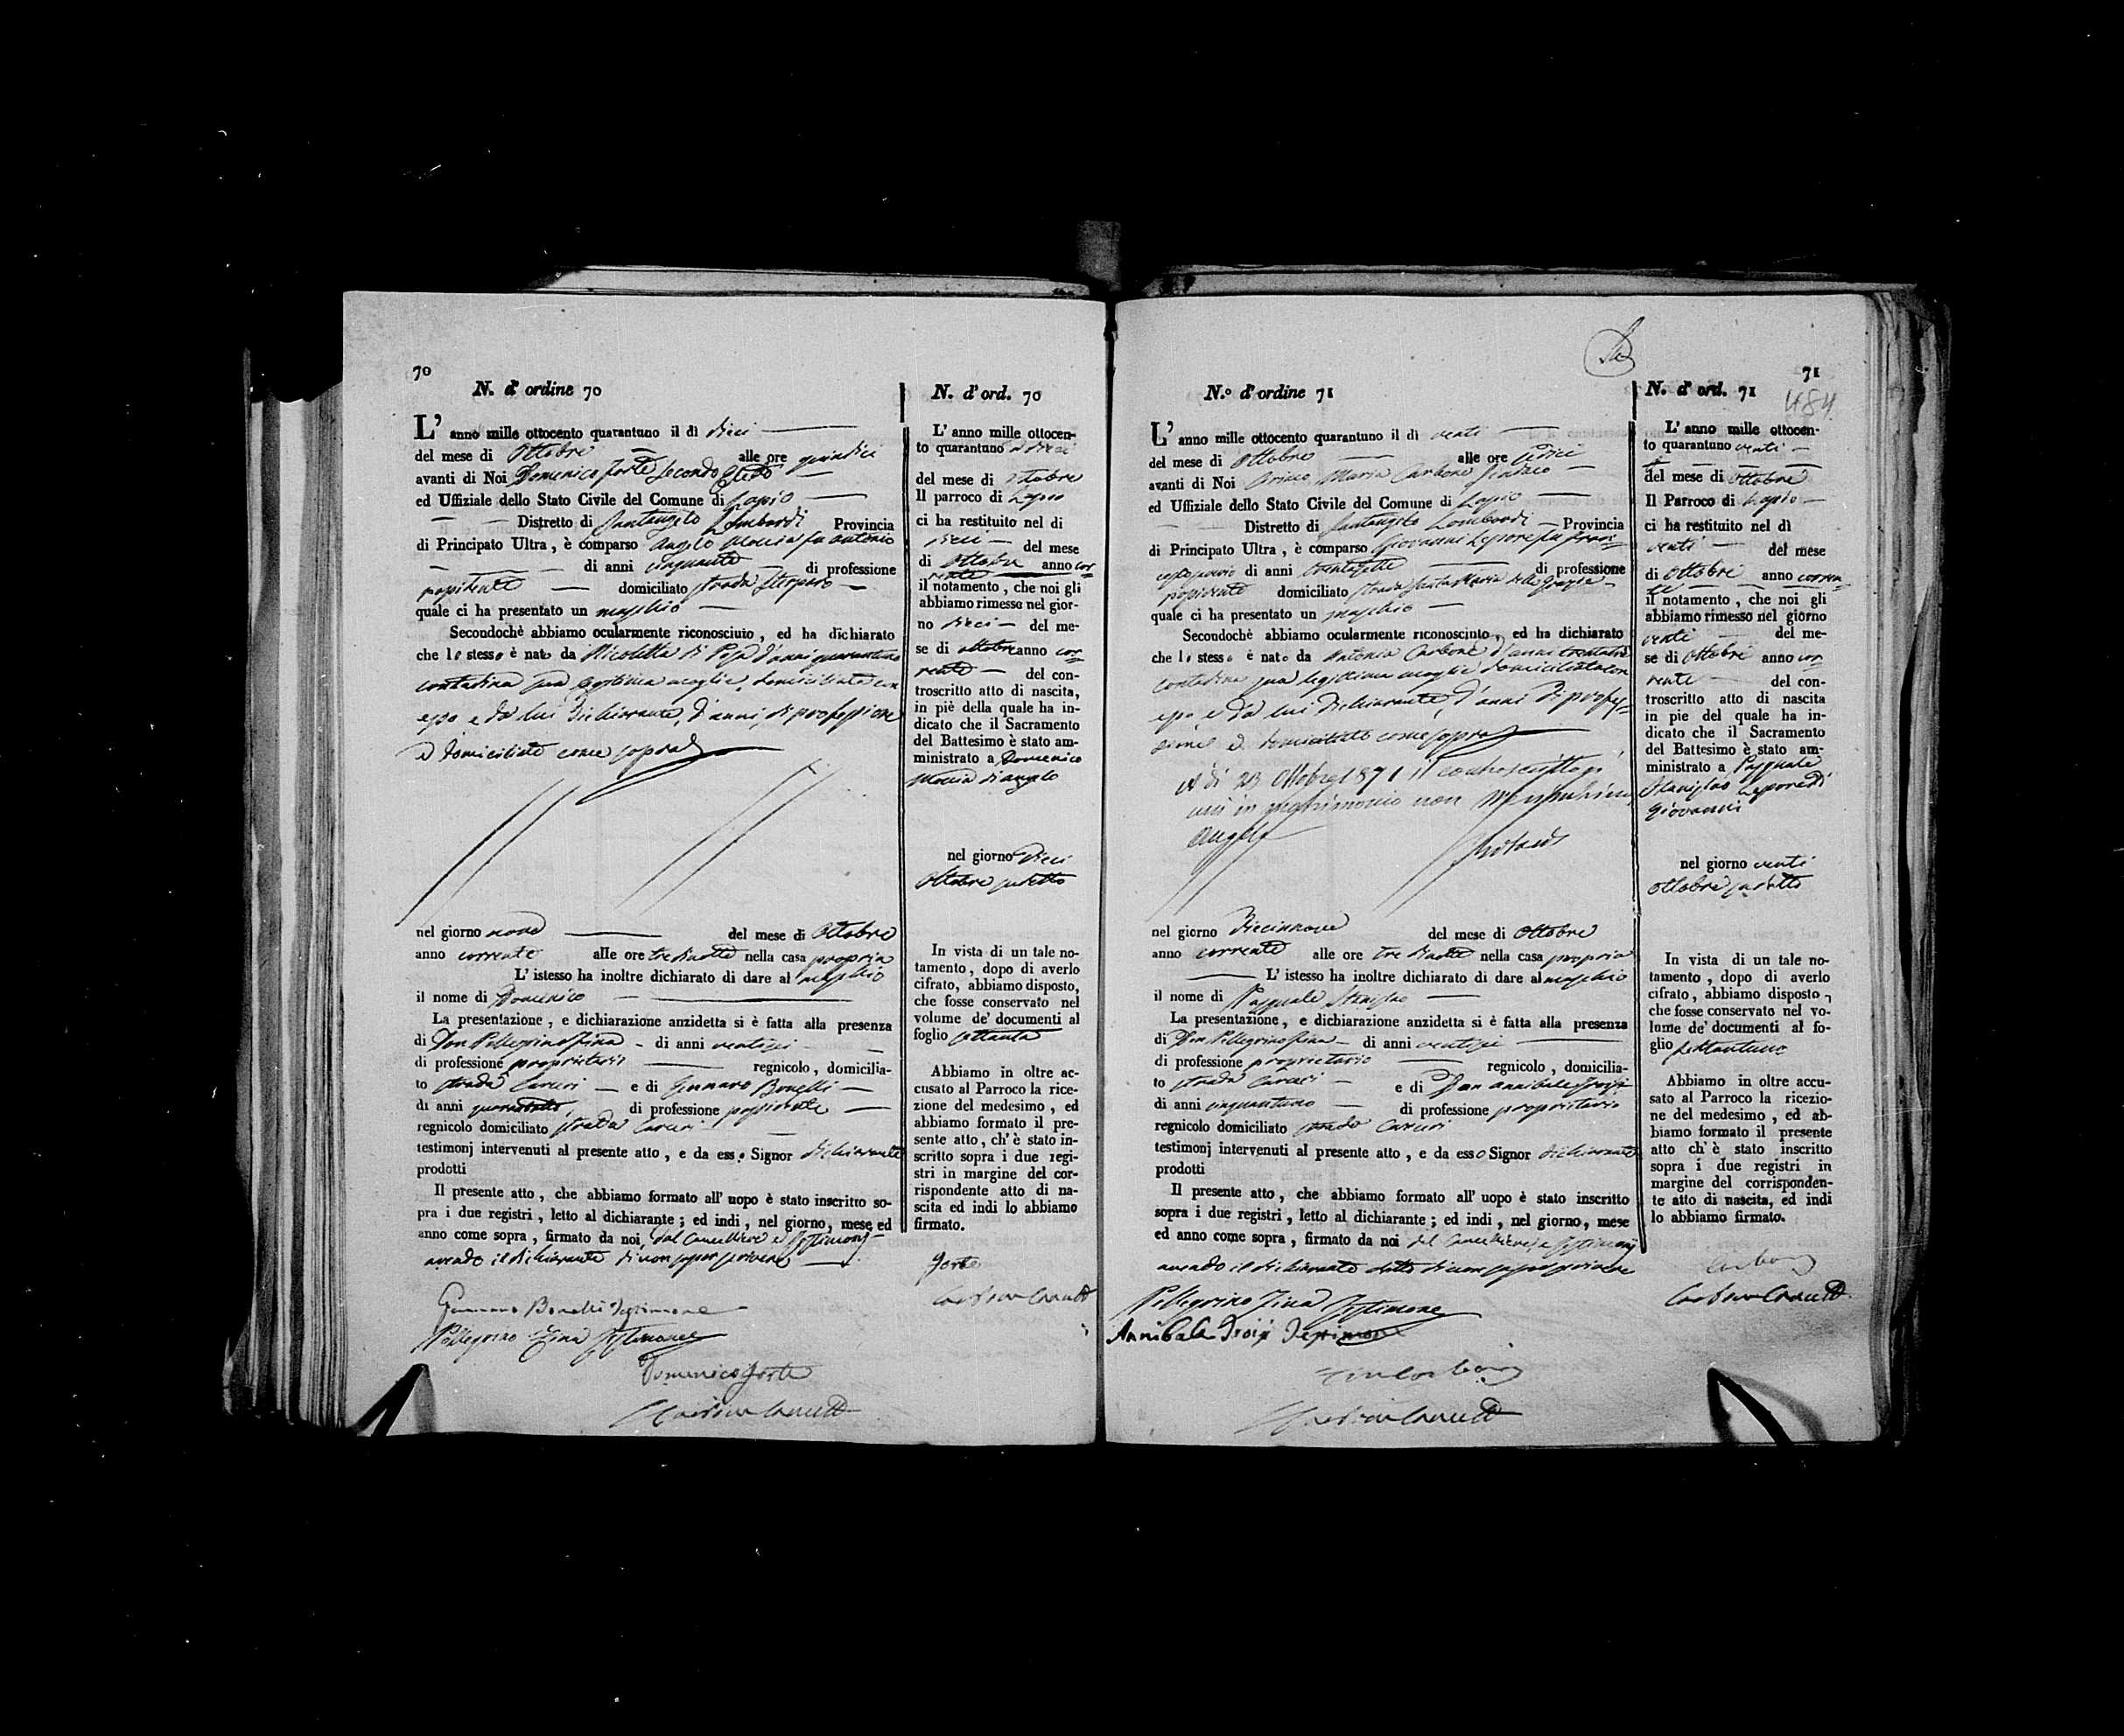 70
N. d' ordine 70
L' anno mille ottocento quarantuno il dì dieci
del mese di Ottobre alle ore quindici
avanti di Noi Domenico Forte Secondo Eletto
ed Uffiziale dello Stato Civile del Comune di Lapio
Distretto di Santangelo Lombardi Provincia
di Principato Ultra, è comparso Angelo fu Antonio
di anni cinquanta di professione
domiciliato strada
quale ci ha presentato un maschio
Secondochè abbiamo ocularmente riconosciuto, ed ha dichiarato
che lo stesso è nato da Nicoletta di d'anni
contadina sua legittima moglie, domiciliata con
esso e da lui dichiarante, d'anni, di professione
e domiciliato come sopra
nel giorno nove del mese di Ottobre
anno corrente alle ore tre di notte nella casa propria
L' istesso ha inoltre dichiarato di dare al maschio
il nome di Domenico
La presentazione, e dichiarazione anzidetta si è fatta alla presenza
di Don Pellegrino Zina di anni ventisei
di professione proprietario regnicolo, domicilia-
to strada Carceri e di Gennaro Bonelli
di anni di professione
regnicolo domiciliato strada Carceri
testimonj intervenuti al presente atto, e da esso Signor dichiarante
prodotti
Il presente atto, che abbiamo formato all' uopo è stato inscritto so-
pra i due registri, letto al dichiarante; ed indi, nel giorno, mese ed
anno come sopra, firmato da noi, dal Cancelliere e Testimonj
avendo il dichiarante di non saper scrivere
Gennaro Bonelli Testimone
Pellegrino Zina Testimone
Domenico Forte
N. d' ord. 70
L' anno mille ottocen-
to quarantuno dieci
del mese di Ottobre
Il parroco di Lapio
ci ha restituito nel dì
dieci del mese
di Ottobre anno cor-
rente
il notamento, che noi gli
abbiamo rimesso nel gior-
no dieci del me-
se di ottobre anno cor-
rente del con-
troscritto atto di nascita,
in piè della quale ha in-
dicato che il Sacramento
del Battesimo è stato am-
ministrato a Domenico
di Angelo
nel giorno dieci
Ottobre sudetto
In vista di un tale no-
tamento, dopo di averlo
cifrato, abbiamo disposto,
che fosse conservato nel
volume de' documenti al
foglio settanta
Abbiamo in oltre ac-
cusato al Parroco la rice-
zione del medesimo, ed
abbiamo formato il pre-
sente atto, ch' è stato in-
scritto sopra i due regi-
stri in margine del cor-
rispondente atto di na-
scita ed indi lo abbiamo
firmato.
Forte
71
484
N.o d' ordine 71
L' anno mille ottocento quarantuno il dì venti
del mese di Ottobre alle ore sedici
avanti di Noi Maria Carbone Sindaco
ed Uffiziale dello Stato Civile del Comune di Lapio
Distretto di Santangelo Lombardi Provincia
di Principato Ultra, è comparso Giovanni Lepore fu
di anni trentasette di professione
domiciliato strada Santa Maria delle Grazie
quale ci ha presentato un maschio
Secondochè abbiamo ocularmente riconosciuto, ed ha dichiarato
che lo stesso è nato da Antonia Carbone d'anni
contadina sua legittima moglie domiciliata con
esso e da lui dichiarante, d'anni di profes-
sione e domiciliato come sopra
A dì 23 Ottobre 1871 il controscritto si
unì in matrimonio con
nel giorno diciannove del mese di Ottobre
anno corrente alle ore tre di notte nella casa propria
L' istesso ha inoltre dichiarato di dare al maschio
il nome di Pasquale Stanislao
La presentazione, e dichiarazione anzidetta si è fatta alla presenza
di Don Pellegrino Zina di anni ventisei
di professione proprietario regnicolo, domicilia-
to strada Carceri e di Don Annibale
di anni cinquantuno di professione proprietario
regnicolo domiciliato strada Carceri
testimonj intervenuti al presente atto, e da esso Signor dichiarante
prodotti
Il presente atto, che abbiamo formato all' uopo è stato inscritto
sopra i due registri, letto al dichiarante; ed indi, nel giorno, mese
ed anno come sopra, firmato da noi dal Cancelliere, e Testimonj
avendo il dichiarante detto di non saper scrivere
Pellegrino Zina Testimone
Annibale Testimone
N. d' ord. 71
L' anno mille ottocen-
to quarantuno venti
del mese di Ottobre
Il Parroco di Lapio
ci ha restituito nel dì
venti del mese
di Ottobre anno corren-
te
il notamento, che noi gli
abbiamo rimesso nel giorno
venti del me-
se di Ottobre anno cor-
rente del con-
troscritto atto di nascita
in pie del quale ha in-
dicato che il Sacramento
del Battesimo è stato am-
ministrato a Pasquale
Stanislao Lepore di
Giovanni
nel giorno venti
Ottobre sudetto
In vista di un tale no-
tamento, dopo di averlo
cifrato, abbiamo disposto,
che fosse conservato nel vo-
lume de' documenti al fo-
glio settantuno
Abbiamo in oltre accu-
sato al Parroco la ricezio-
ne del medesimo, ed ab-
biamo formato il presente
atto ch' è stato inscritto
sopra i due registri in
margine del corrisponden-
te atto di nascita, ed indi
lo abbiamo firmato.
Carbone